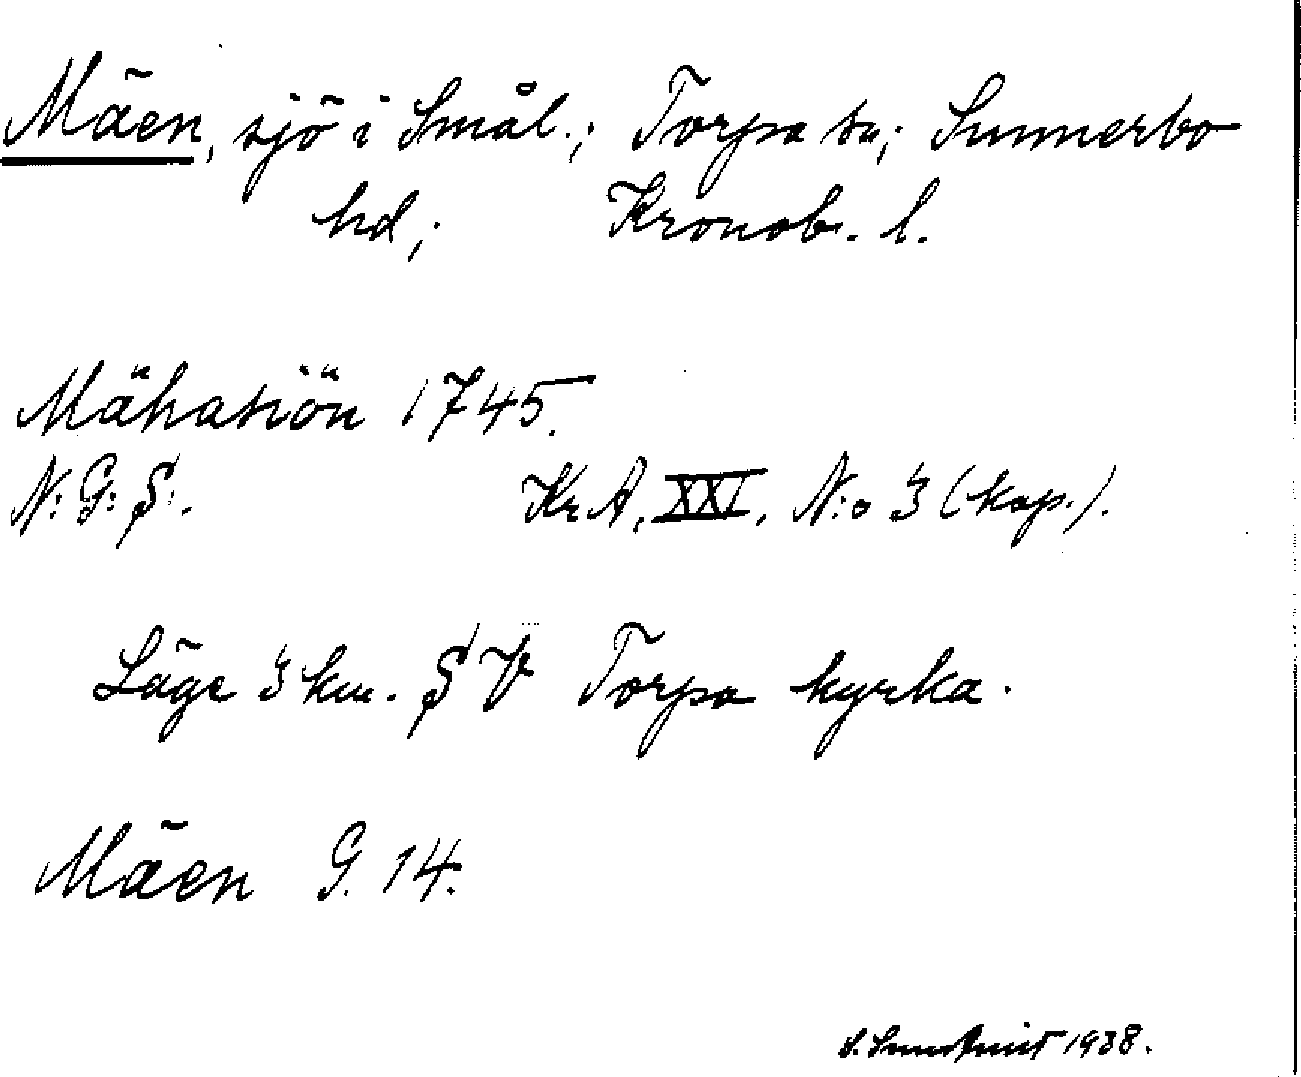 Mäen, sjö i Smål.; Torpa sn; Sunnerbo
hd; Kronob. l.
Mähasiön 1745.
N: G: S:. KrA, XXI, N:o 3 (kop.).
Läge 3 km. SV Torpa kyrka.
Mäen G. 14.
S. Sundkvist 1938.